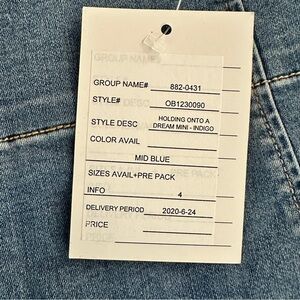 GROUP NAME# 882-0431
STYLE# OB1230090
STYLE DESC HOLDING ONTO A
DREAM MINI - INDIGO
COLOR AVAIL
MID BLUE
SIZES AVAIL+PRE PACK
INFO 4
DELIVERY PERIOD 2020-6-24
PRICE